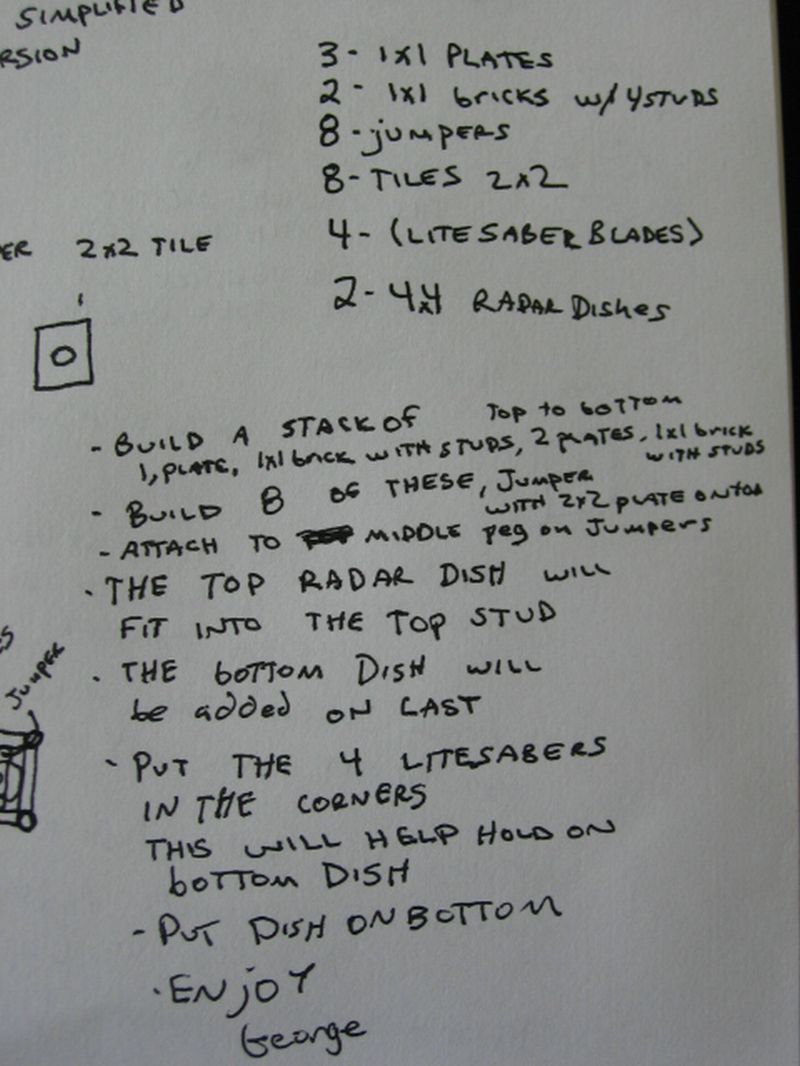 SIMPLIFIED
RSION
3 - 1x1 PLATES
2 - 1x1 bricks w/ 4 STUDS
8 - jumpers
8 - TILES 2x2
4 - (LITESABER BLADES)
2 - 4x4 RADAR Dishes
ER 2x2 TILE
- BUILD A STACK OF Top to bottom
1, PLATE, 1x1 brick WITH STUDS, 2 PLATES, 1x1 brick
WITH STUDS
- BUILD 8 OF THESE, JUMPER
WITH 2x2 PLATE ON TOP
- ATTACH TO MIDDLE peg on Jumpers
. THE TOP RADAR DISH WILL
FIT INTO THE TOP STUD
. THE bOTTOM DISH WILL
be added ON LAST
JUMPER
- PUT THE 4 LITESABERS
IN THE CORNERS
THIS WILL HELP HOLD ON
bOTTOM DISH
- PUT DISH ON BOTTOM
. ENjOY
George